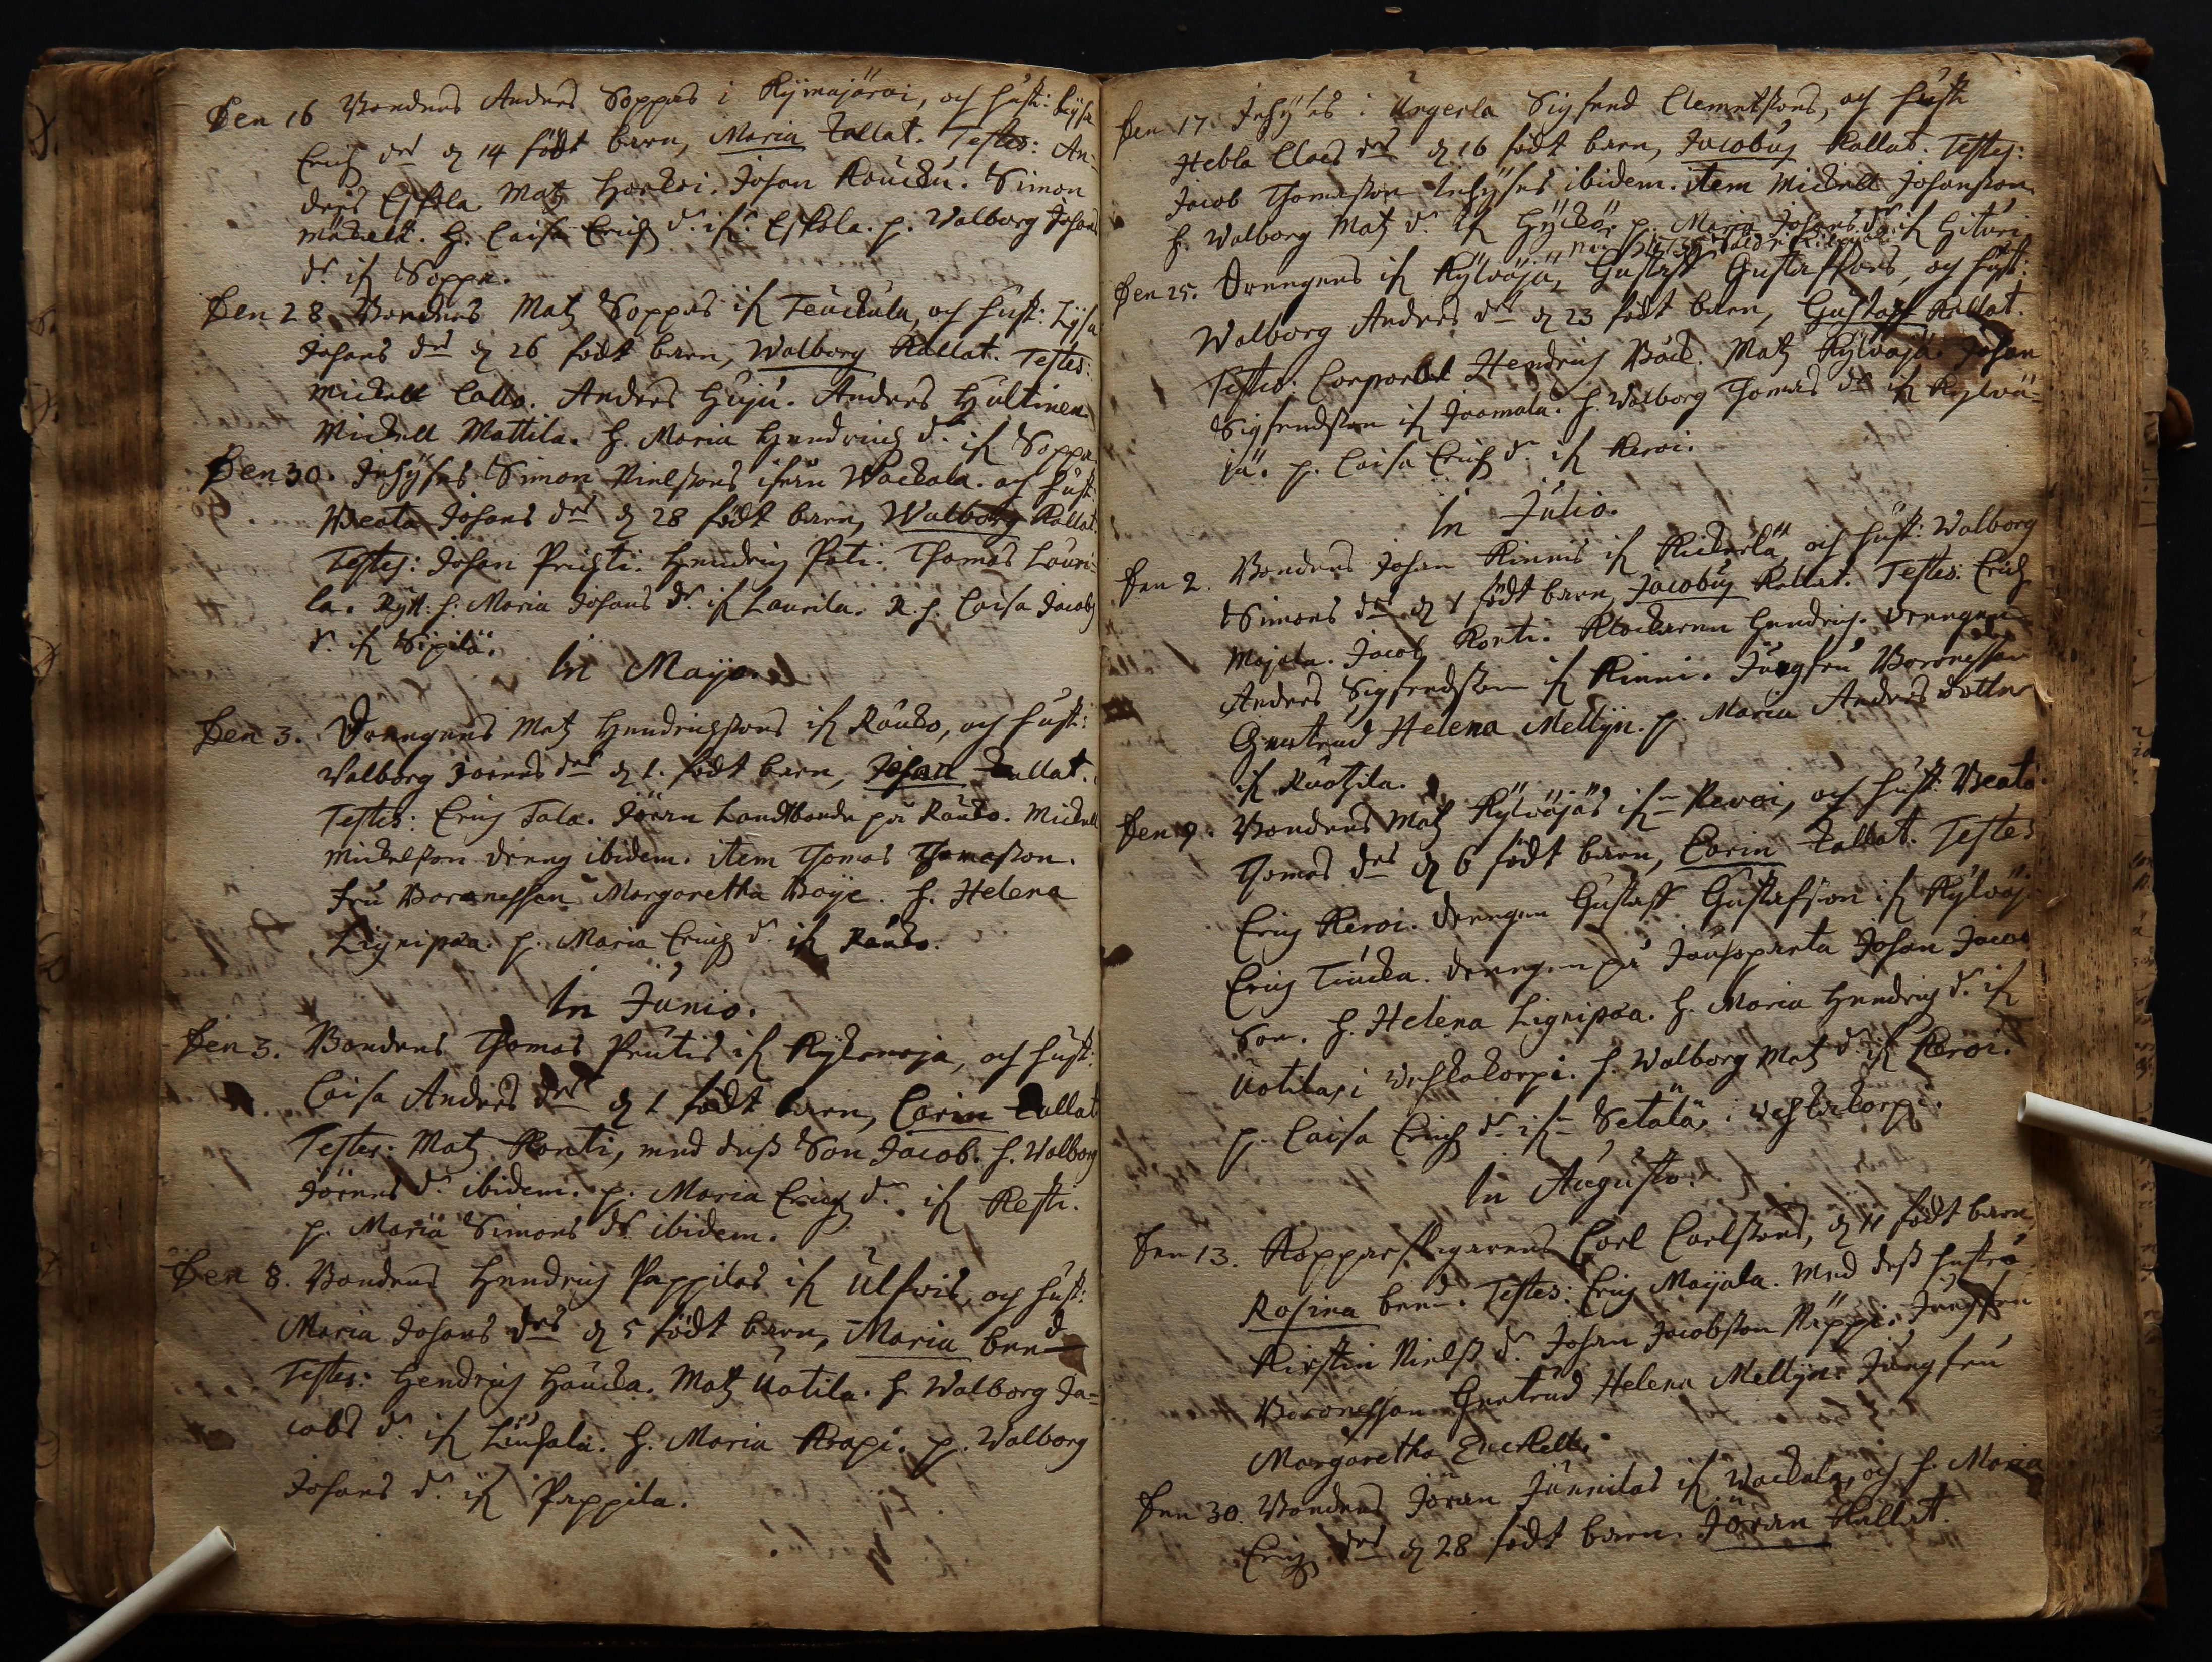 Den 16 Bondens Anders Soppas i Kÿmajärvi, och hust: Lÿsa
Erichz drs d 14 födt barn, Maria kallat. Testes: An-
ders Eskola Matz Horkoi. Johan Koucku. Simon
Mäckelä. H. Caisa Erichz d. ifr. Eskola. p. Walborg Johans
d. ifr Soppa.
Den 28 Bondens Matz Soppas ifr Teuckula, och hust: Lÿsa
Johans drs d 26 födt barn, Walborg Kallat. Testes:
Mickell Callo. Anders Huju. Anders Hultinen.
Mickell Mattila. H. Maria Hendrichz d. ifr Soppa
Den 30. Inhÿses Simon Nielssons ifrån Wackala. och hust:
Beata Johans drs d 28 födt barn, Walborg Kallat.
Testes: Johan Prichti. Hendrich Pati. Thomas Lauri-
la. Rÿtt: h: Maria Johans d. ifr Laurila. R. h. Caisa Jacobz
d. ifr Sipilä.
In Mayo.
Den 3. Drengens Matz Hendrichssons ifr Rauko, och hust:
Walborg Jörens drs d 1. födt barn, Johan kallat.
Testes: Erich Tala. Jöran Landtbonde på Rauko. Mickell
Mickelsson dreng ibidem. item Thomas Thomasson.
Fru Baronessen Margaretha Boije. H. Helena
Lignipæa. p. Maria Erichz d. ifr Rauko.
In Junio.
Den 3. Bondens Thomas Prutis ifr Kÿkenoja, och hust:
Caisa Anders drs d 1 födt barn, Carin kallat
Testes: Matz Konti, med dess Son Jacob. h. Walborg
Jörens d. ibidem. p. Maria Erichz d. ifr Resti.
p. Maria Simons d. ibidem.
Den 8. Bondens Hendrich Pappilas ifr Ulfwis, och hust:
Maria Johans drs d 5 födt barn, Maria bend
Testes: Hendrich Haucka. Matz Uotila. h. Walborg Ja-
cobs d. ifr Liuhala. H. Maria Krapi. p. Walborg
Johans d. ifr Pappila.
Den 17 Inhÿses i Ungerla Sigfred Clemetssons, och hust
Hebla Claes drs d 16 födt barn, Jacobus Kallat. Testes:
Jacob Thomasson Inhÿses ibidem. item Mickell Johansson.
h. Walborg Matz d. ifr Hÿckö. p. Maria Johans d. ifr Hituri
Den 25. Drengens ifr Kÿlväjä, Gustaff Gustaffsons, och hust:
Walborg Anders drs d 23 födt barn, Gustaff Kallat.
Testes: Corporal Hendrich Bäck. Matz Kÿlväjä. Johan
Sigfredsson ifr Jaamala. h. Walborg Thomas d. ifr Kÿlvä-
jä. p. Caisa Erichz d. ifr Keroi.
In Julio.
Den 2. Bondens Johan Kinnis ifr Kickerlä, och hust: Walborg
Simons drs d 1 födt barn, Jacobus Kallat. Testes: Erich
Majala. Jacob Konti. Klockaren Hendrich. drengen
Anders Sigfredsson ifr Kinni. Jungfru Baronessan
Gertrud Helena Mellijn. p. Maria Anders dotter
ifr Ruotzila.
Den 9. Bondens Matz Kÿlväjäs ifr Keroi, och hust: Beata
Thomas drs d 6 födt barn, Carin kallat. Testes
Erich Keroi. drengen Gustaff Gustafsson ifr Kÿlväj
Erich Tiucka. drengen på Jansoparta Johan Jacob
Son. H. Helena Lignipæa. H. Maria Hendrichz d. ifr
Uotila i Uhskakorpi. h. Walborg Matz d. ifr Keroi.
p. Caisa Erichz d. ifr Setälä i Uhskakorpi.
In Augusto.
Den 13. Kopparslagarens Carl Carlssons, d 11 födt barn,
Rosina bend. Testes: Erich Majala. Med dess hustru
Kirstin Nielss d. Johan Jacobsson Räppi. Jungfru
Baronessan Gertrud Helena Mellijn. Jungfru
Margaretha Euckell.
Den 30. Bondens Jöran Junnilas ifr Wackala, och h. Maria
Erichz drs d 28 födt barn. Jöran Kallat.